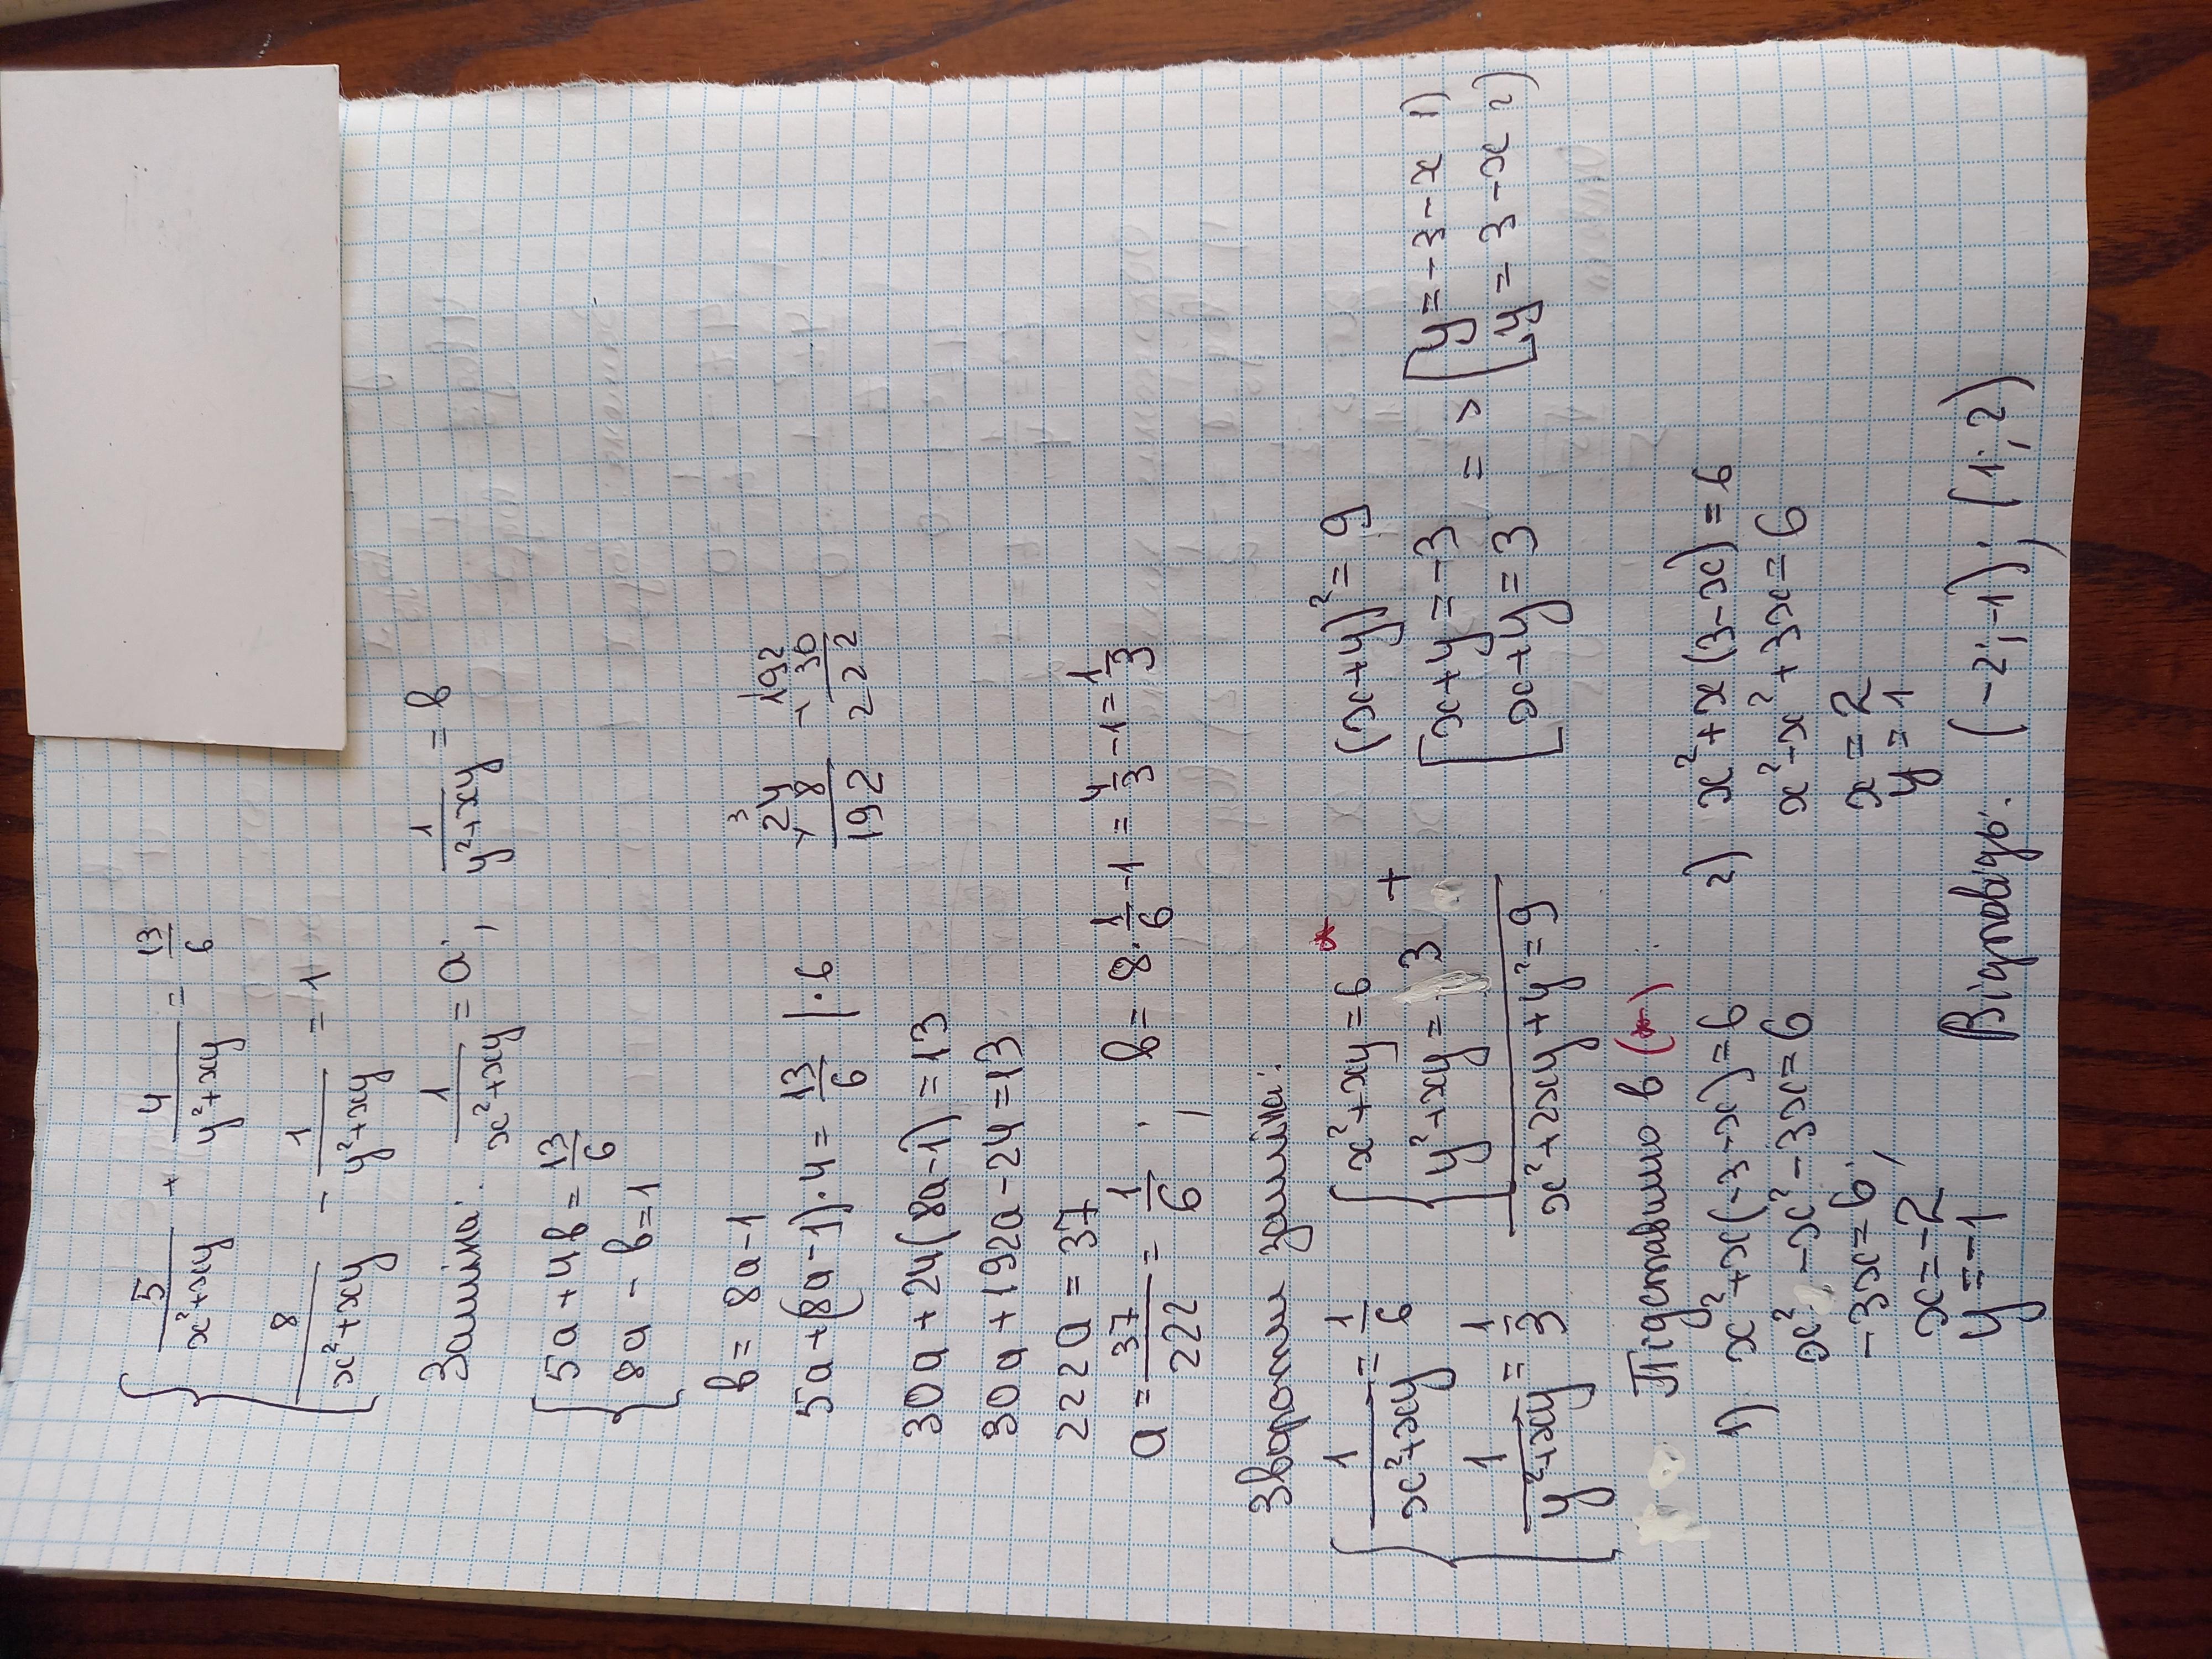 { 5/(x²+xy) + 4/(y²+xy) = 13/6
8/(x²+xy) − 1/(y²+xy) = 1
Заміна: 1/(x²+xy) = a; 1/(y²+xy) = b
{ 5a+4b = 13/6
8a − b = 1
b = 8a−1
5a+(8a−1)·4 = 13/6 |·6
30a+24(8a−1)=13
30a+192a−24=13
222a = 37
a = 37/222 = 1/6; b = 8·1/6−1 = 4/3−1 = 1/3
3
24
× 8
192
192
+ 30
222
Зворотня заміна:
{ 1/(x²+xy) = 1/6
1/(y²+xy) = 1/3
{ x²+xy=6 *
y²+xy=3 +
x²+2xy+y²=9
(x+y)²=9
[ x+y=−3
x+y=3
=> [ y=−3−x 1)
y=3−x 2)
Підставимо в (*)
1) x²+x(−3−x)=6
x²−x²−3x=6
−3x=6;
x=−2
y=−1
2) x²+x(3−x)=6
x²−x²+3x=6
x=2
y=1
Відповідь: (−2;−1); (1;2)